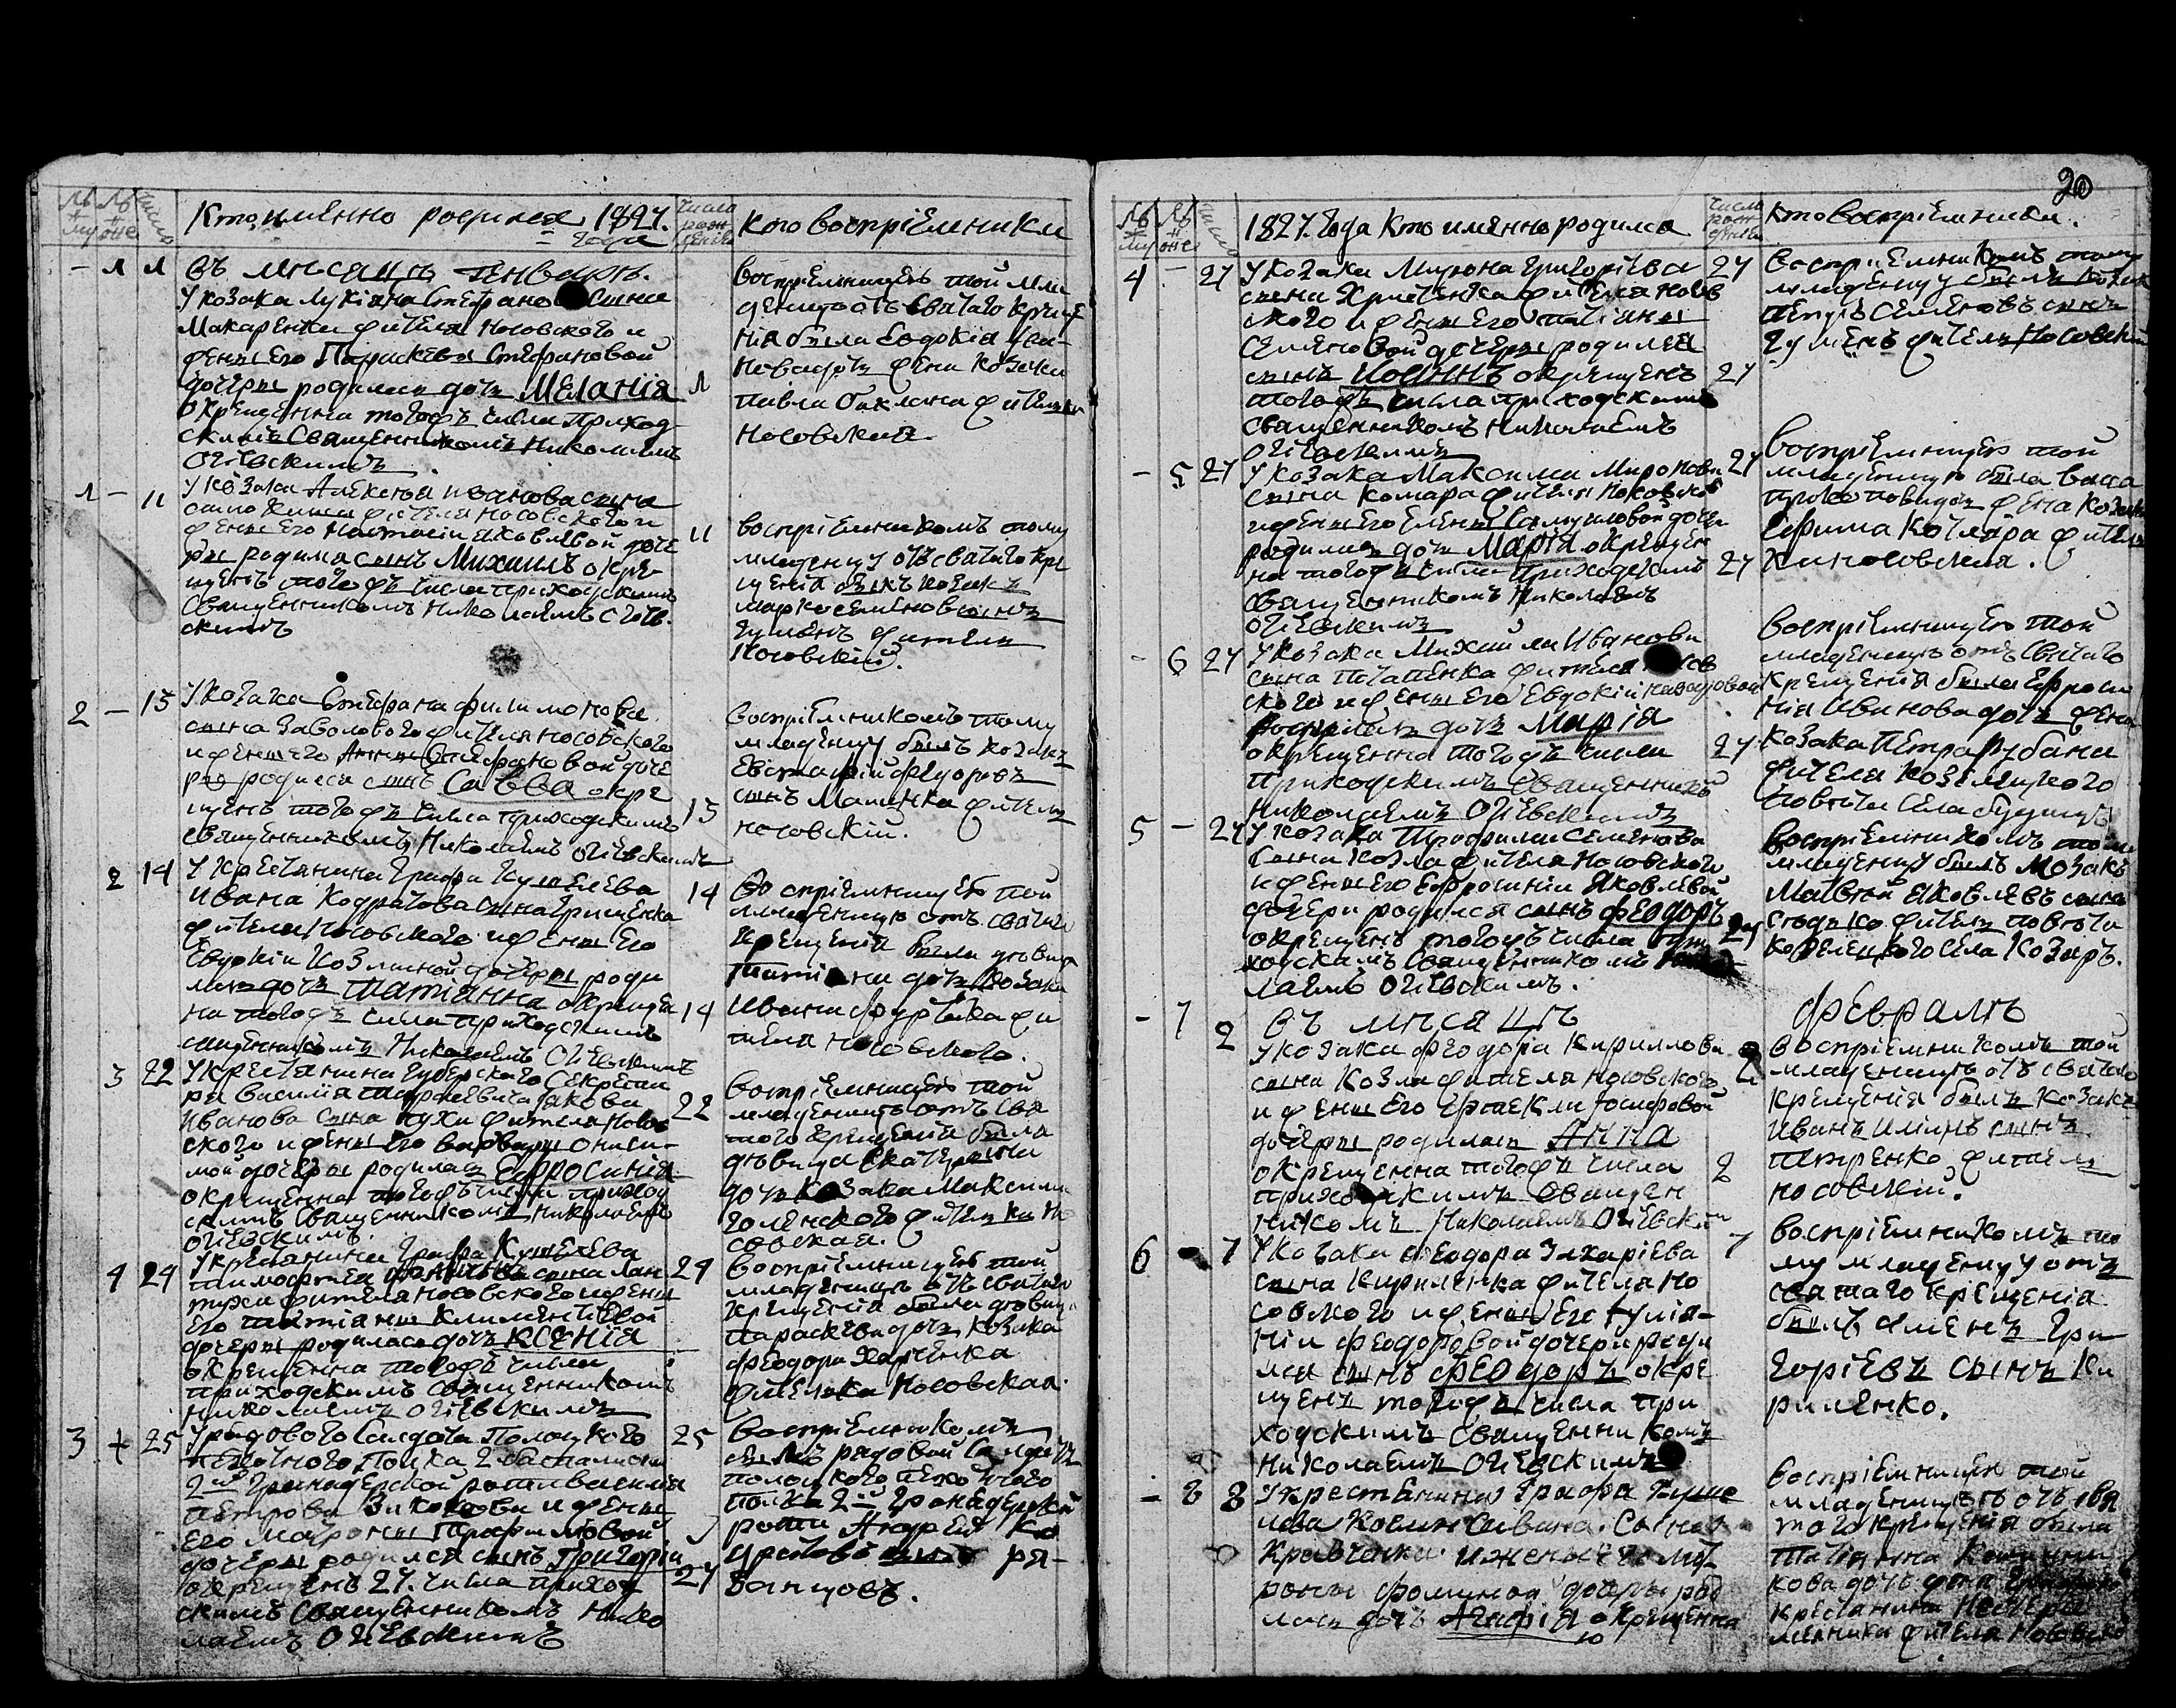 Кто именно родился 1827.
года
число рож
кто воспріемники
- 1 1
Въ мѣсяцѣ Генварѣ.
У козака Лукіяна Стефанова сына
Макаренка жителя Носовского и
жены его Параскевы Стефановой
дочеры родилась дочь Меланія
окрещенна тогожъ числа приход
скимъ Священникомъ Николаемъ
Огіевскимъ.
1
воспріемницею той мла
деницѣ отъ Святаго креще
нія была Евдокія Ива-
нова дочь жена козака
павла Баклана жителька
Носовская
1 - 11
У козака Алексѣя Иванова сына
жителя Носовского и
жены его Настасіи Яковлевой доче
ры родился сынъ Михаилъ окре-
щенъ тогожъ числа приходскимъ
Священникомъ Николаемъ Огіев-
скимъ
11
воспріемникомъ тому
младенцу отъ святаго кре
щенія былъ козакъ
Марко Семеновъ сынъ
Гуменъ житель
Носовскій.
2 - 13
У козака Стефана филимонова
сына Заволового жителя носовского
и жены его Анны Стефановой доче
ры родился сынъ Савва окре
щенъ тогожъ числа приходскимъ
священникомъ Николаемъ Огіевскимъ
13
Воспріемникомъ тому
младенцу былъ козакъ
Евстафій федоровъ
сынъ Малинка житель
носовскій.
2 14
У Крестянина Графа Кушелева
Ивана Кодратова сына Грищенка
жителя Носовского и жены его
Евдокіи Козминой дочеры роди
лась дочь Татіанна окрещен
на тогожъ числа приходскимъ
священникомъ Николаемъ Огіевскимъ
14
14
Воспріемницею той
младеницѣ отъ святаго
крещенія была дѣвица
Татіана дочь козака
Ивана жи
теля носовского.
3 22
У Крестянина Губерского Секрета
ря Василія Якова
Иванова сына жителя Носов
ского и жены его варвары Ониси-
мой дочеры родилась Ефросинія
окрещенна тогожъ числа приход
скимъ Священникомъ Николаемъ
Огіевскимъ.
22
воспріемницею той
младеницѣ отъ Свя
того крещенія была
дѣвица Екатерина
дочь козака Максима
Голенского жителька Но
совская.
4 24
У крестянина Графа Кушелева
Тимофѣя сына Лан
туха жителя носовского и жены
его Татіаны Климентіевой
дочеры родилась дочь Ксенія
окрещенна тогожъ числа
приходскимъ священникомъ
Николаемъ Огіевскимъ
24
воспріемницею той
младеницѣ отъ святаго
крещенія была дѣвица
Параскева дочь козака
феодора Харченка
жителька Носовская.
3 + 25
У рядового Салдата Полоцкого
пехотного Полка 2 баталиона
2й Гранадерской роты Василія
Петрова и жены
его Матроны Трофимовой
дочеры родился сынъ Григорій
окрещенъ 27. числа приход
скимъ Священникомъ Нико
лаемъ Огіевскимъ
25
27
воспріемникомъ
былъ рядовой Салдатъ
полоцкого пехотного
полка 2й Гранадерской
роты Андрей
ря-
занцовъ.
20
1827. Года Кто именно родился
число рож
кто воспріемники.
4 - 27
У козака Мирона Григоріева
сына Христенка жителя Носов
ского и жены его татіаны
Семеновой дочеры родился
сынъ Иоаннъ окрещенъ
тогожъ числа приходскимъ
священникомъ Николаемъ
Огіевскимъ
27
27
Воспріемникомъ тому
младенцу былъ козакъ
петръ Семеновъ сынъ
Гуменъ житель Носовскій
- 5 27
У козака Максима Миронова
сына Комара жителя Носовско
и жены его Елены Самуиловой дочеры
родилась дочь Марія окрещен
на тогожъ числа приходскимъ
священникомъ Николаемъ
Огіевскимъ
27
27
воспріемницею той
младеницѣ была васса
прокопова дочь жена козака
Ефима Котляра житель
ка носовская.
- 6 27
У козака Михаила Иванова
сына Потапенка жителя Носов
ского и жены его Евдокіи назаровой
дочь Марія
окрещенна тогожъ числа
приходскимъ священникомъ
Николаемъ Огіевскимъ
27
воспріемницею той
младеницѣ отъ Святаго
крещенія была Ефроси
нія Иванова дочь жена
козака Петра Рубана
жителя Козелецкого
повѣта Села
5 - 27
У козака Трофима Семенова
сына Козла жителя Носовского
и жены его Ефросиніи Яковлевой
дочери родился сынъ феодоръ
окрещенъ тогожъ числа при
ходскимъ Священникомъ Нико
лаемъ Огіевскимъ.
27
воспріемникомъ тому
младенцу былъ козакъ
Матвѣй Яковлевъ сынъ
житель повѣта
Козелецкого села Козаръ.
Въ мѣсяцѣ
февралѣ
- 7 2
У козака феодора Кириллова
сына Козла жителя носовского
и жены его Іосифовой
дочеры родилась Анна
окрещенна тогожъ числа
приходскимъ Священ
никомъ Николаемъ Огіевским
2
2
воспріемникомъ той
младеницѣ отъ святаго
крещенія былъ козакъ
Иванъ Илинъ сынъ
Петренко житель
носовскій.
6 - 7
У козака феодора Захаріева
сына Кириленка жителя Но
совского и жены его Іуліа-
ніи феодоровой дочери роди
лся сынъ феодоръ окре
щенъ тогожъ числа при
ходскимъ священникомъ
Николаемъ Огіевскимъ
7
воспріемникомъ то
му младенцу отъ
святаго крещенія
былъ Гри
горіевъ сынъ Ки
риленко.
- 8 8
У крестянина Графа Куше
лева Козмы Савина сына
Кравченка и жены его Мат
роны фоминой дочеры роди
лась дочь Агафія окрещенна
10
воспріемницею той
младеницѣ отъ свя
того крещенія была
Татіянна
кова дочь жена
крестянина
жителя Носовско